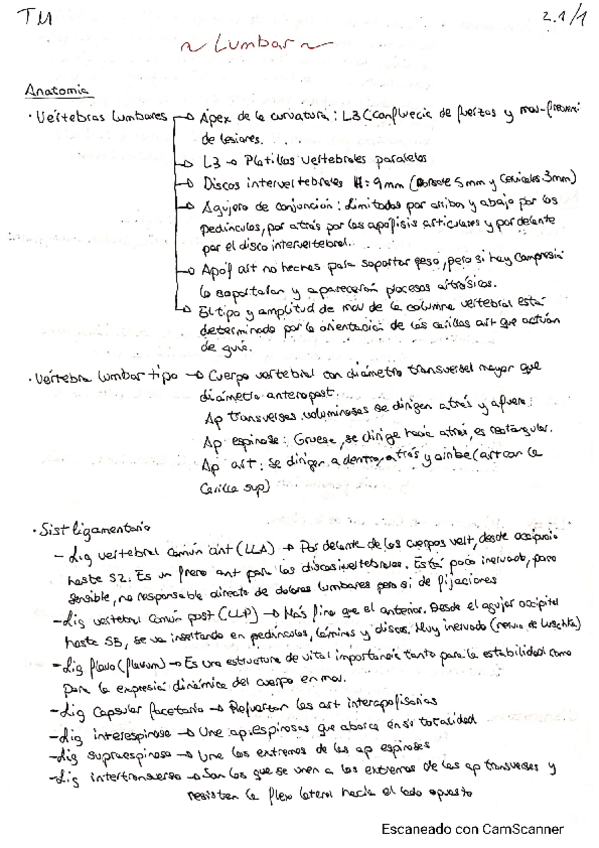 TM
2.1/1
~ Lumbar ~
Anatomia
· Vértebras lumbares → Ápex de la curvatura: L3 (confluecia de fuerzas y
de lesiones.
→ L3 → Platillos vertebrales paralelos
→ Discos intervertebrales H: 9mm (Dorsale 5mm y Cervicales 3mm)
→ Agujero de conjunción: Limitados por arriba y abajo por los
pedínculos, por atrás por las apófisis articulares y por delante
por el disco intervertebral.
→ Apóf art no hechas para soportar peso, pero si hay compresió
lo soportaran y apareceran procesos artrósicos.
→ El tipo y amplitud de mov de la columna vertebral está
determinado por la orientación de las carillas art que actúan
de guía.
· Vértebra lumbar tipo → Cuerpo vertebral con diámetro transversal mayor que
diámetro anteropost.
Ap transversas voluminosas se dirigen atrás y afuera.
Ap espinosa: Gruesa, se dirige hacia atrás, es rectangular.
Ap art: se dirigen a dentro, atrás y arriba (art con la
carilla sup)
· Sist ligamentario
- Lig vertebral común ant (LLA) → Por delante de los cuerpos vert, desde occipucio
hasta S2. Es un freno ant para los discos vertebrales. Está poco inervado, poco
sensible, no responsable directo de dolores lumbares pero si de fijaciones
- Lig vertebral común post (LLP) → Más fino que el anterior. Desde el agujer occipital
hasta S5, se va insertando en pedínculos, láminas y discos. Muy inervado (nervio de Luschka)
- Lig flavo (flavum) → Es una estructura de vital importancia tanto para la estabilidad como
para la expresió dinámica del cuerpo en mov.
- Lig capsular facetario → Refuerzan las art interapofisarias
- Lig interespinoso → Une ap. Espinosas que abarca en su totalidad
- Lig supraespinoso → Une los extremos de las ap espinosas
- Lig intertransverso → Son los que se unen a los extremos de las ap transversas y
resisten la flexo lateral hacia el lado opuesto
Escaneado con CamScanner